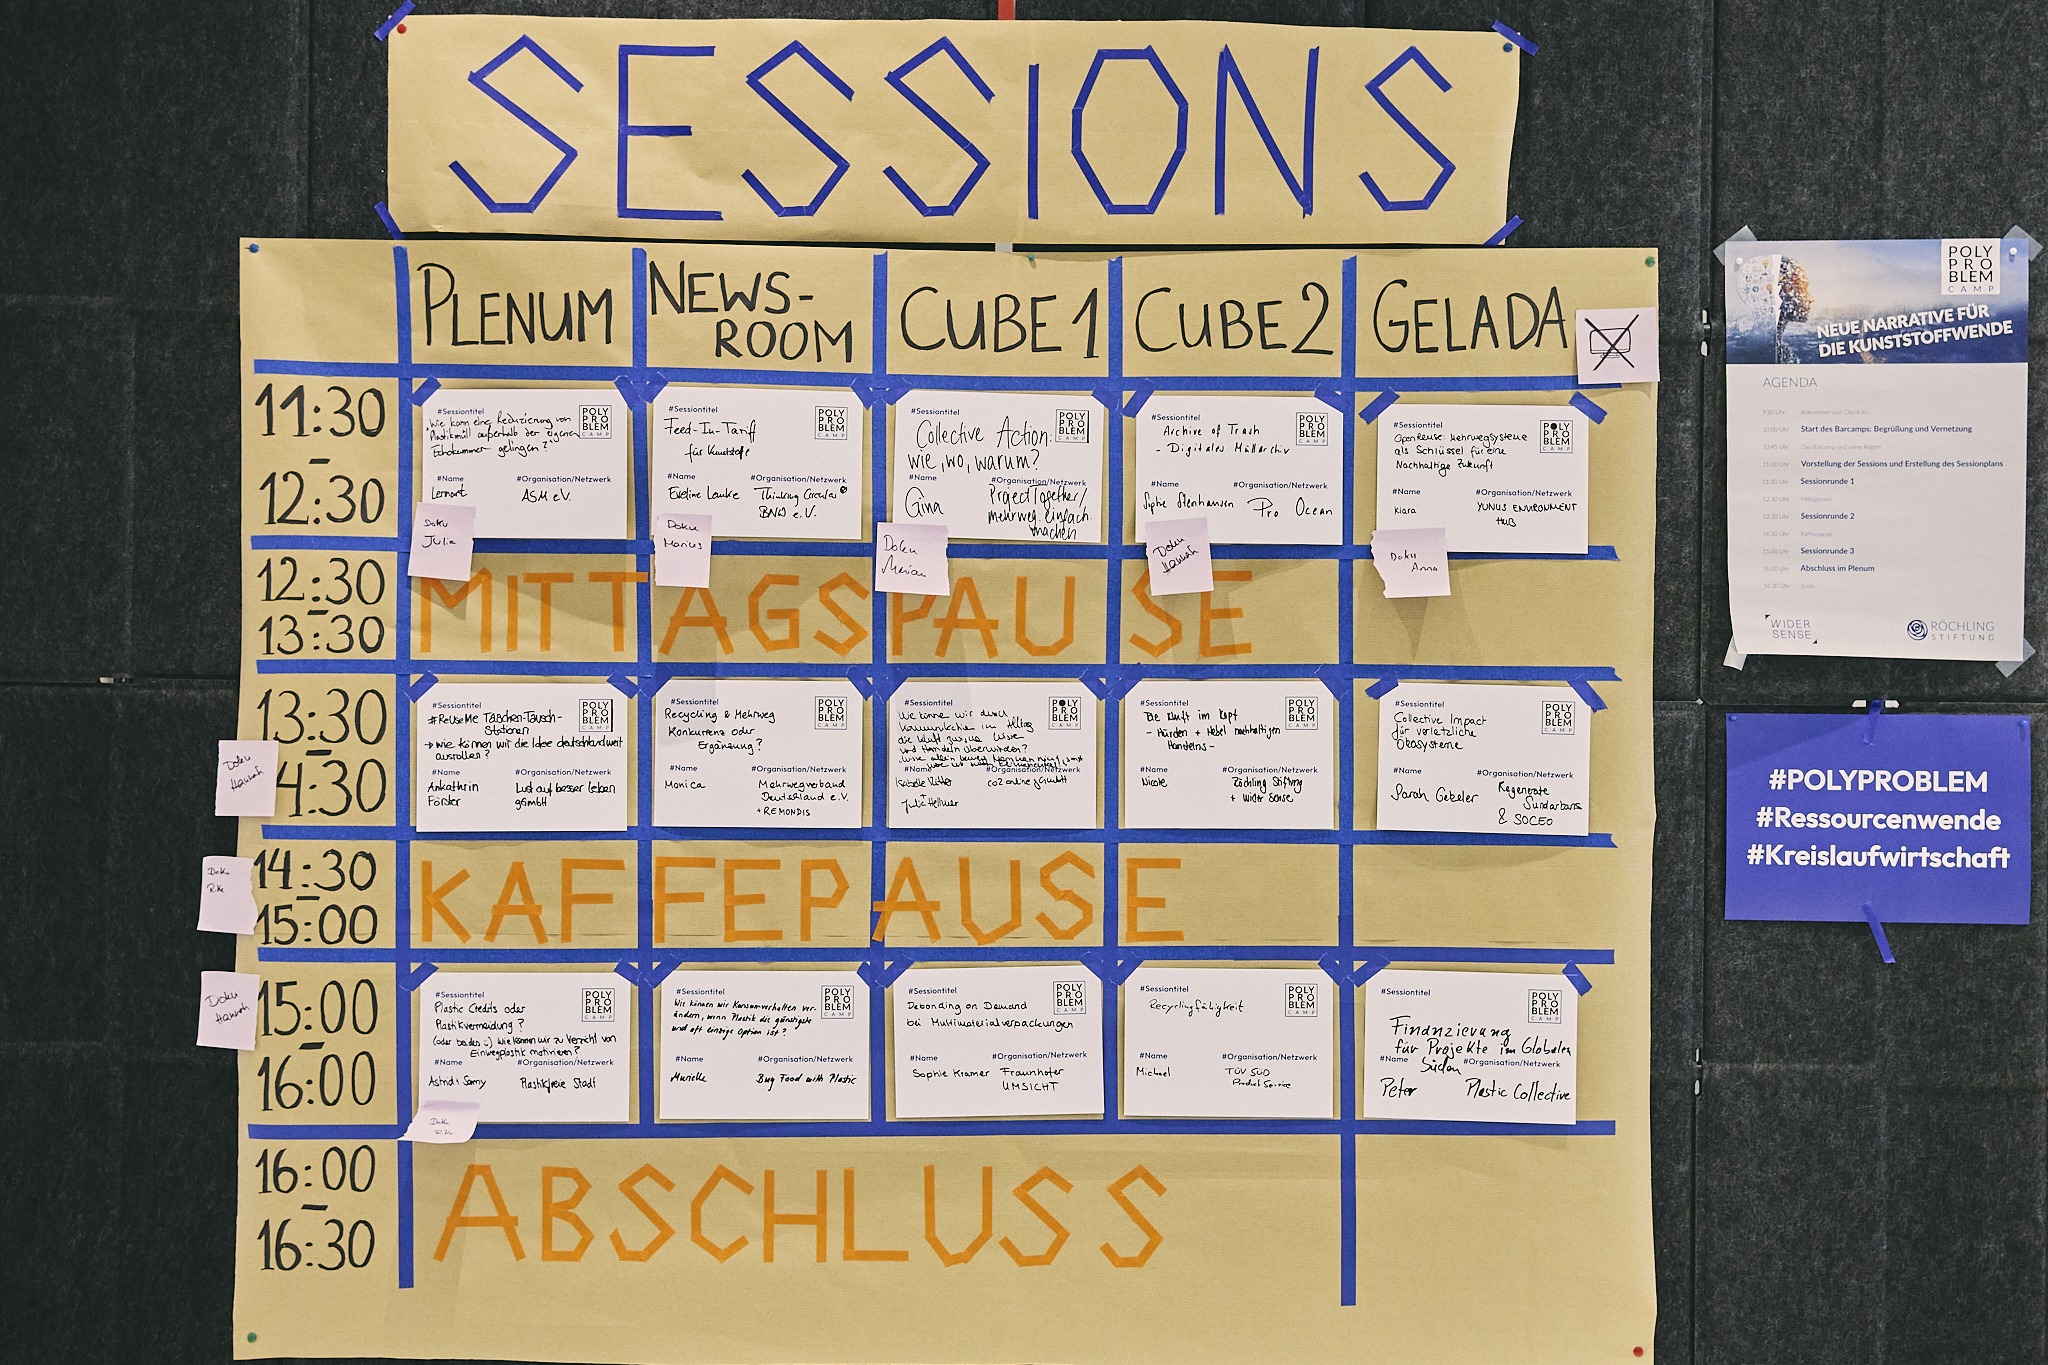 SESSIONS
PLENUM
NEWS-
ROOM
CUBE 1
CUBE 2
GELADA
11:30
-
12:30
#Sessiontitel
POLY
PRO
BLEM
CAMP
"Wie kann eine Reduzierung von
Plastikmüll außerhalb der eigenen
Echokammer gelingen?"
#Name
#Organisation/Netzwerk
Lennart
ASM e.V.
Doku
Julia
#Sessiontitel
POLY
PRO
BLEM
CAMP
Feed-In-Tariff
für Kunststoffe
#Name
#Organisation/Netzwerk
Eveline Lemke
Thinking Circular
BNW e.V.
Doku
Marius
#Sessiontitel
POLY
PRO
BLEM
CAMP
Collective Action:
wie, wo, warum?
#Name
#Organisation/Netzwerk
Gina
ProjectTogether/
mehrweg.einfach.
machen
Doku
#Sessiontitel
POLY
PRO
BLEM
CAMP
Archive of Trash
- Digitales Müllarchiv
#Name
#Organisation/Netzwerk
Pro Ocean
Doku
Hannah
#Sessiontitel
POLY
PRO
BLEM
CAMP
Open Reuse: Mehrwegsysteme
als Schlüssel für eine
Nachhaltige Zukunft
#Name
#Organisation/Netzwerk
Kiara
YUNUS ENVIRONMENT
HUB
Doku
Anna
12:30
-
13:30
MITTAGSPAUSE
13:30
-
14:30
Doku
Hannah
#Sessiontitel
POLY
PRO
BLEM
CAMP
#ReUseMe Taschen-Tausch-
Stationen
→ wie können wir die Idee deutschlandweit
ausrollen?
#Name
#Organisation/Netzwerk
Ankathrin
Förder
Lust auf besser leben
gGmbH
#Sessiontitel
POLY
PRO
BLEM
CAMP
Recycling & Mehrweg
Konkurrenz oder
Ergänzung?
#Name
#Organisation/Netzwerk
Monica
Mehrwegverband
Deutschland e.V.
+ REMONDIS
#Sessiontitel
POLY
PRO
BLEM
CAMP
Wie können wir durch
Kommunikation im Alltag
die Kluft zwischen Wissen
und Handeln überwinden?
#Name
#Organisation/Netzwerk
co2 online gGmbH
#Sessiontitel
POLY
PRO
BLEM
CAMP
Die Kluft im Kopf
- Hürden + Hebel nachhaltigen
Handelns -
#Name
#Organisation/Netzwerk
Nicole
Röchling Stiftung
+ Wider Sense
#Sessiontitel
POLY
PRO
BLEM
CAMP
Collective Impact
für verletzliche
Ökosysteme
#Name
#Organisation/Netzwerk
Sarah
Regenerate
Sundarbans
& SOCEO
14:30
-
15:00
Doku
KAFFEPAUSE
15:00
-
16:00
Doku
Hannah
#Sessiontitel
POLY
PRO
BLEM
CAMP
Plastic Credits oder
Plastikvermeidung?
(oder beides :) Wie können wir zu Verzicht von
Einwegplastik motivieren?
#Name
#Organisation/Netzwerk
Astrid +
Plastikfreie Stadt
#Sessiontitel
POLY
PRO
BLEM
CAMP
Wie können wir Konsumverhalten ver-
ändern, wenn Plastik die günstigste
und oft einzige Option ist?
#Name
#Organisation/Netzwerk
Murielle
Buy Food with Plastic
#Sessiontitel
POLY
PRO
BLEM
CAMP
Debonding on Demand
bei Multimaterialverpackungen
#Name
#Organisation/Netzwerk
Sophie Kramer
Fraunhofer
UMSICHT
#Sessiontitel
POLY
PRO
BLEM
CAMP
Recyclingfähigkeit
#Name
#Organisation/Netzwerk
Michael
TÜV SÜD
Product Service
#Sessiontitel
POLY
PRO
BLEM
CAMP
Finanzierung
für Projekte im Globalen
Süden
#Name
#Organisation/Netzwerk
Peter
Plastic Collective
16:00
-
16:30
ABSCHLUSS
POLY
PRO
BLEM
CAMP
NEUE NARRATIVE FÜR
DIE KUNSTSTOFFWENDE
AGENDA
9.30 Uhr Ankommen und Check-in
10.00 Uhr Start des Barcamps: Begrüßung und Vernetzung
10.45 Uhr Das Barcamp und seine Regeln
11.00 Uhr Vorstellung der Sessions und Erstellung des Sessionplans
11.30 Uhr Sessionrunde 1
12.30 Uhr Mittagessen
13.30 Uhr Sessionrunde 2
14.30 Uhr Kaffeepause
15.00 Uhr Sessionrunde 3
16.00 Uhr Abschluss im Plenum
16.30 Uhr Ende
WIDER
SENSE
RÖCHLING
STIFTUNG
#POLYPROBLEM
#Ressourcenwende
#Kreislaufwirtschaft